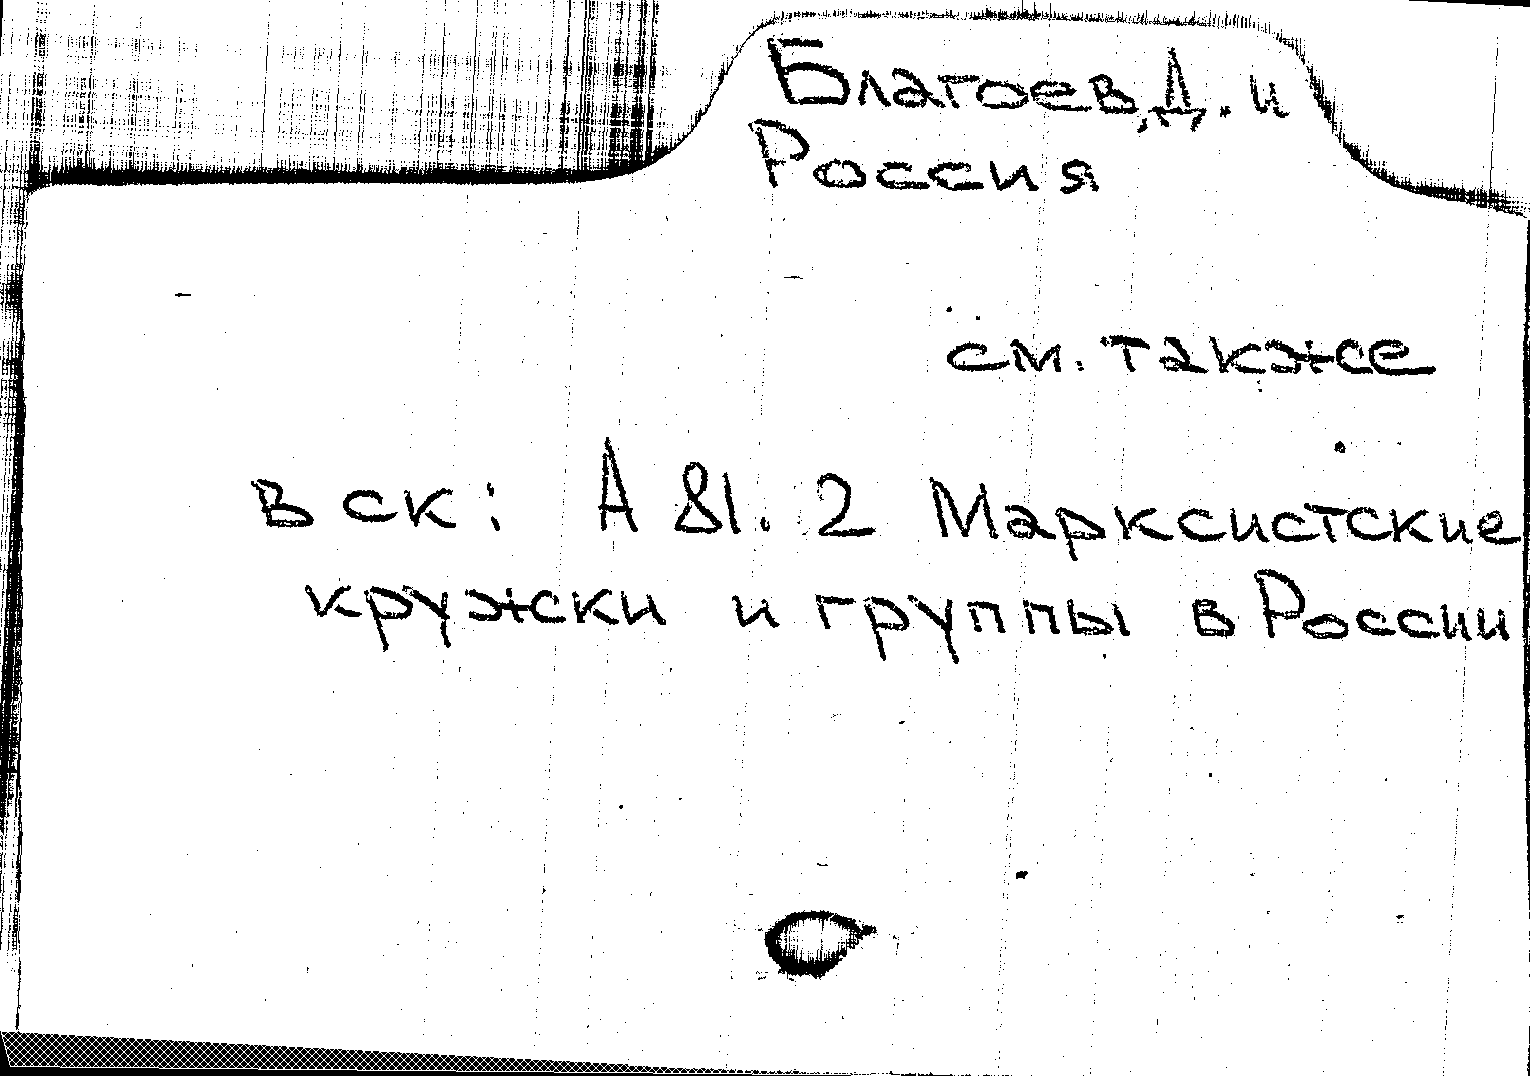 Благоев, Д. и
Россия
см. также
в СК: А 81. 2 Марксистские
кружки и группы в России